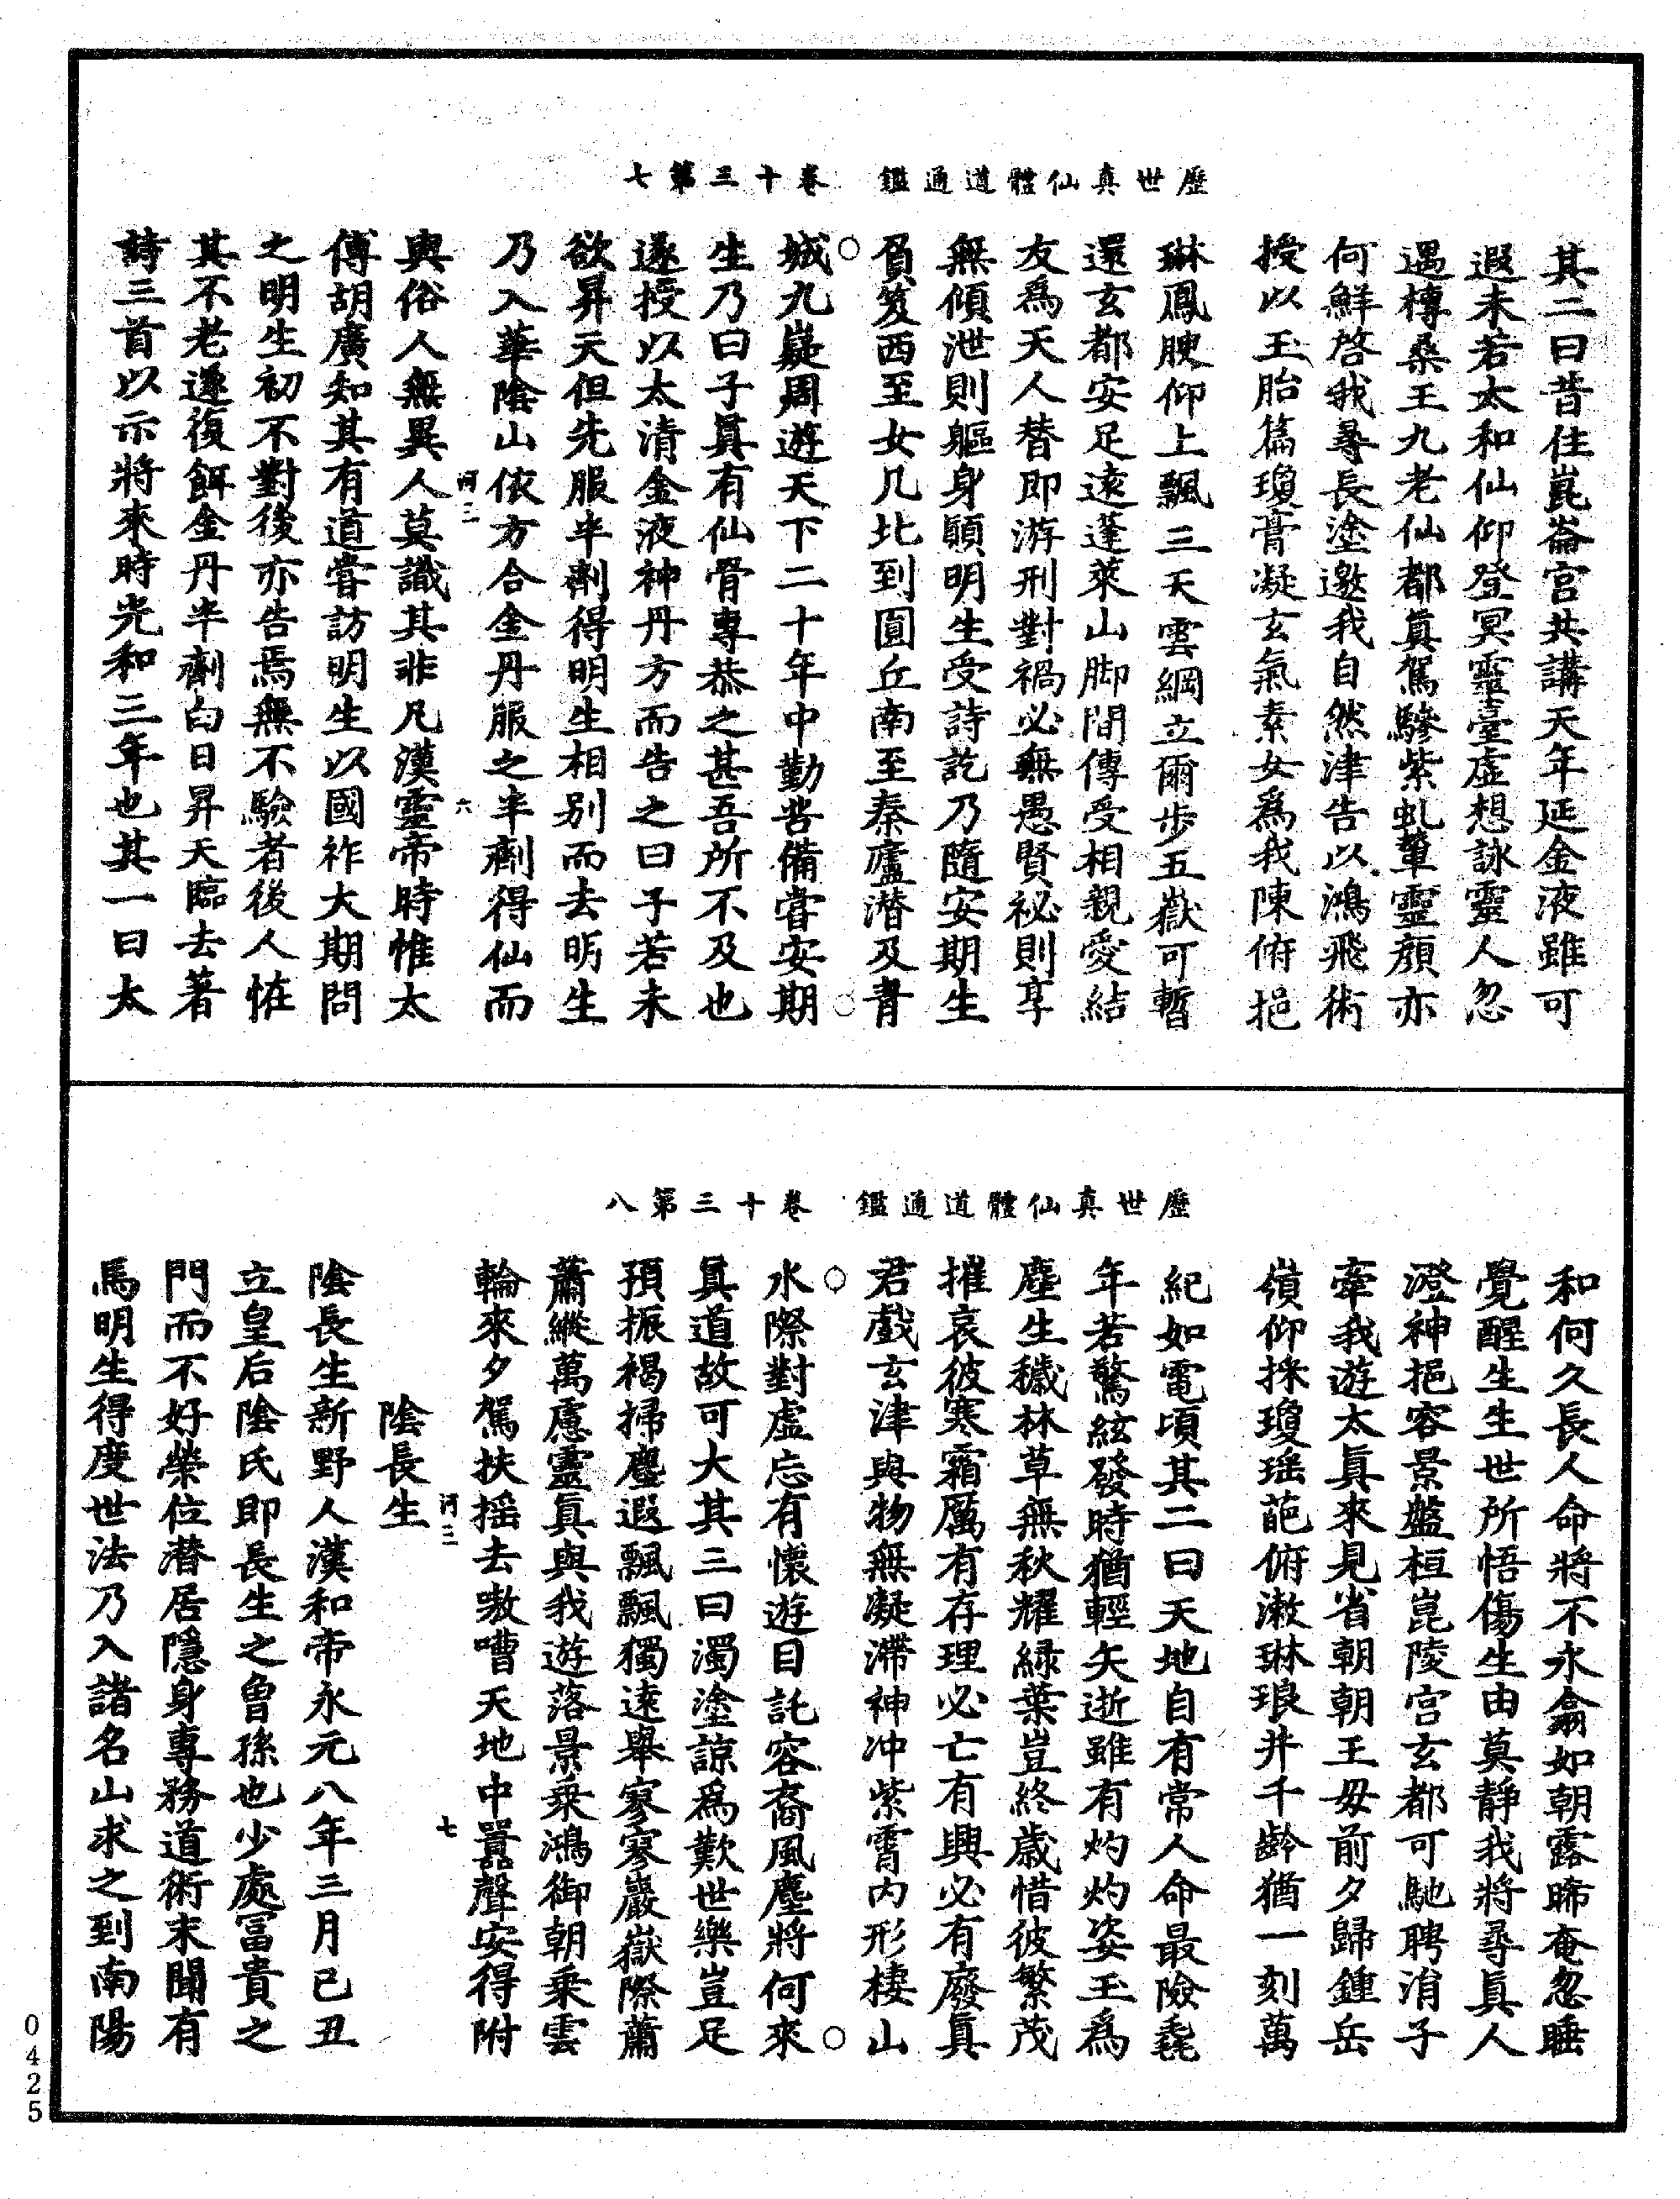 歷世真仙體道通鑑　卷十三第七
其二曰昔住崑崙宮共講天年延金液雖可
遐未若太和仙仰登冥靈臺虛想詠靈人忽
遇榑桑王九老仙都真駕驂紫虬輦靈顏亦
何鮮啓我尋長塗邀我自然津告以鴻飛術
授以玉胎篇瓊膏凝玄氣素女爲我陳俯挹
琳鳳腴仰上飄三天雲綱立爾步五嶽可暫
還玄都安足遠蓬萊山脚間傳受相親愛結
友爲天人替即游刑對禍必無愚賢祕則享
無傾泄則軀身顛明生受詩訖乃隨安期生
負笈西至女几北到圓丘南至秦廬潛及青
城九嶷周遊天下二十年中勤苦備嘗安期
生乃曰子真有仙骨專恭之甚吾所不及也
遂授以太清金液神丹方而告之曰子若未
欲昇天但先服半劑得明生相別而去明生
乃入華陰山依方合金丹服之半劑得仙而
河三
六
與俗人無異人莫識其非凡漢靈帝時惟太
傅胡廣知其有道嘗訪明生以國祚大期問
之明生初不對後亦告焉無不驗者後人怪
其不老遂復餌金丹半劑白日昇天臨去著
詩三首以示將來時光和三年也其一曰太
歷世真仙體道通鑑　卷十三第八
和何久長人命將不永翕如朝露晞奄忽睡
覺醒生生世所悟傷生由莫靜我將尋真人
澄神挹容景盤桓崑陵宮玄都可馳聘涓子
牽我遊太真來見省朝朝王母前夕歸鍾岳
嶺仰採瓊瑤葩俯漱琳琅井千齡猶一刻萬
紀如電頃其二曰天地自有常人命最險毳
年若驚絃發時猶輕矢逝雖有灼灼姿玉爲
塵生穢林草無秋耀綠葉豈終歲惜彼繁茂
摧哀彼寒霜厲有存理必亡有興必有廢真
君戲玄津與物無凝滯神冲紫霄內形棲山
水際對虛忘有懷遊目託容裔風塵將何來
真道故可大其三曰濁塗諒爲歎世樂豈足
預振褐掃塵遐飄飄獨遠舉寥寥巖嶽際蕭
蕭縱萬慮靈真與我遊落景乘鴻御朝乘雲
輪來夕駕扶搖去嗷嘈天地中囂聲安得附
河三
七
陰長生
陰長生新野人漢和帝永元八年三月己丑
立皇后陰氏即長生之曾孫也少處富貴之
門而不好榮位潛居隱身專務道術末聞有
馬明生得度世法乃入諸名山求之到南陽
0425